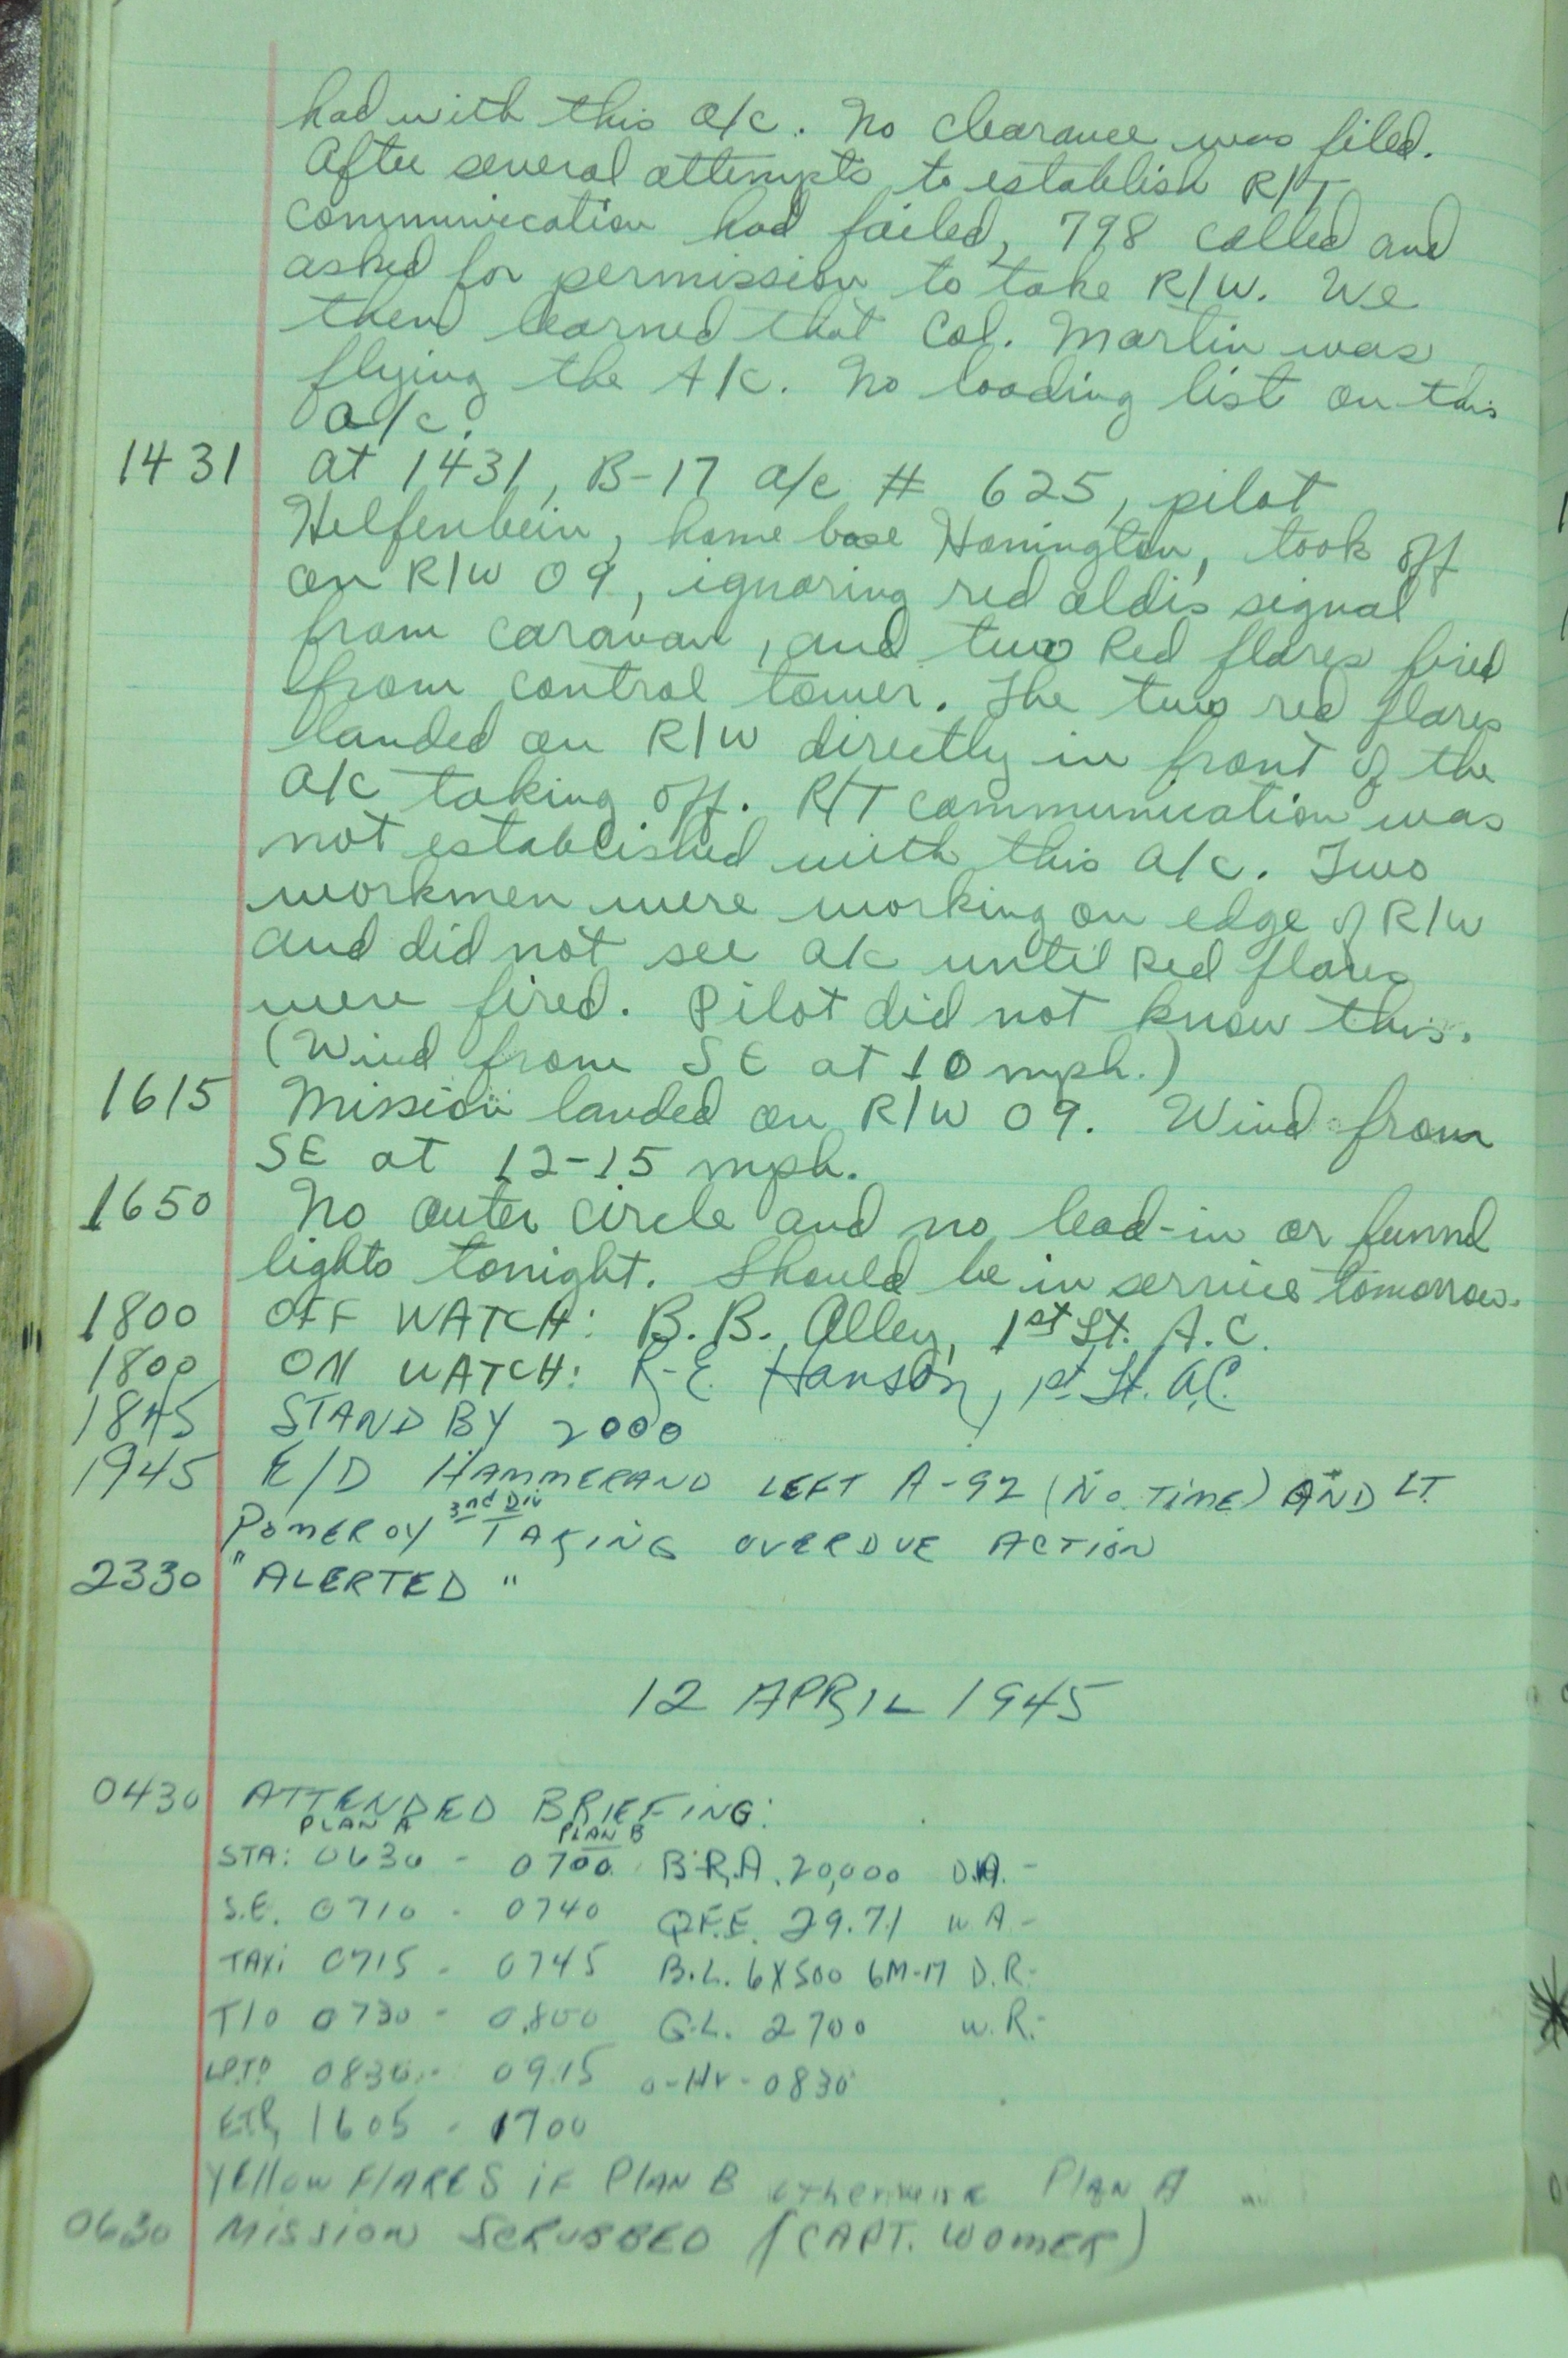 had with this a/c. No clearance was filed.
After several attempts to establish R/T
communication had failed, 798 called and
asked for permission to take R/W. We
then learned that Col. Martin was
flying the A/C. No loading list on this
a/c.
1431 At 1431, B-17 a/c # 625, pilot
Helfenbein, home base Honington, took off
on R/W 09, ignoring red aldis signal
from caravan, and two Red flares fired
from control tower. The two red flares
landed on R/W directly in front of the
a/c taking off. R/T communication was
not established with this a/c. Two
workmen were working on edge of R/W
and did not see a/c until Red flares
were fired. Pilot did not know this.
(Wind from SE at 10 mph.)
1615 Mission landed on R/W 09. Wind from
SE at 12-15 mph.
1650 No outer circle and no lead-in or funnel
lights tonight. Should be in service tomorrow.
1800 OFF WATCH: B.B. Alley, 1st Lt. A.C.
1800 ON WATCH: R.E. Hanson, 1st Lt. A.C.
1845 STAND BY 2000
1945 E/D HAMMERAND LEFT A-92 (NO TIME) AND LT.
POMEROY 3rd DIV TAKING OVERDUE ACTION
2330 "ALERTED"
12 APRIL 1945
0430 ATTENDED BRIEFING:
PLAN A PLAN B
STA: 0630 - 0700 B.R.A. 20,000 D.A. -
S.E. 0710 - 0740 Q.F.E. 29.71 W A -
TAXi 0715 - 0745 B.L. 6X500 6M-17 D.R. -
T/O 0730 - 0800 G.L. 2700 W.R. -
0830 - 0915 0-Hr - 0830
ETR 1605 - 1700
YEllow FlARES iF PlAN B otherwise PlAN A
0630 MISSION SCRUBBED (CAPT. WOMER)